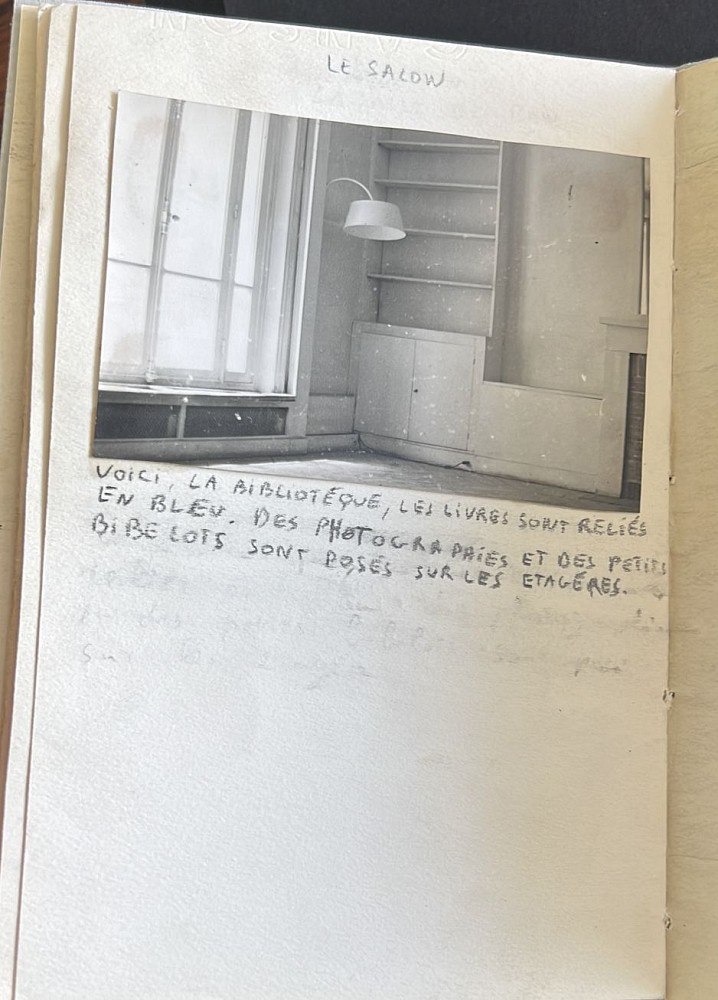 CANSON
LE SALON
VOICI, LA BIBLIOTÉQUE, LES LIVRES SONT RELIÉS
EN BLEU. DES PHOTOGRAPHIES ET DES PETITS
BIBELOTS SONT POSÉS SUR LES ETAGÉRES.